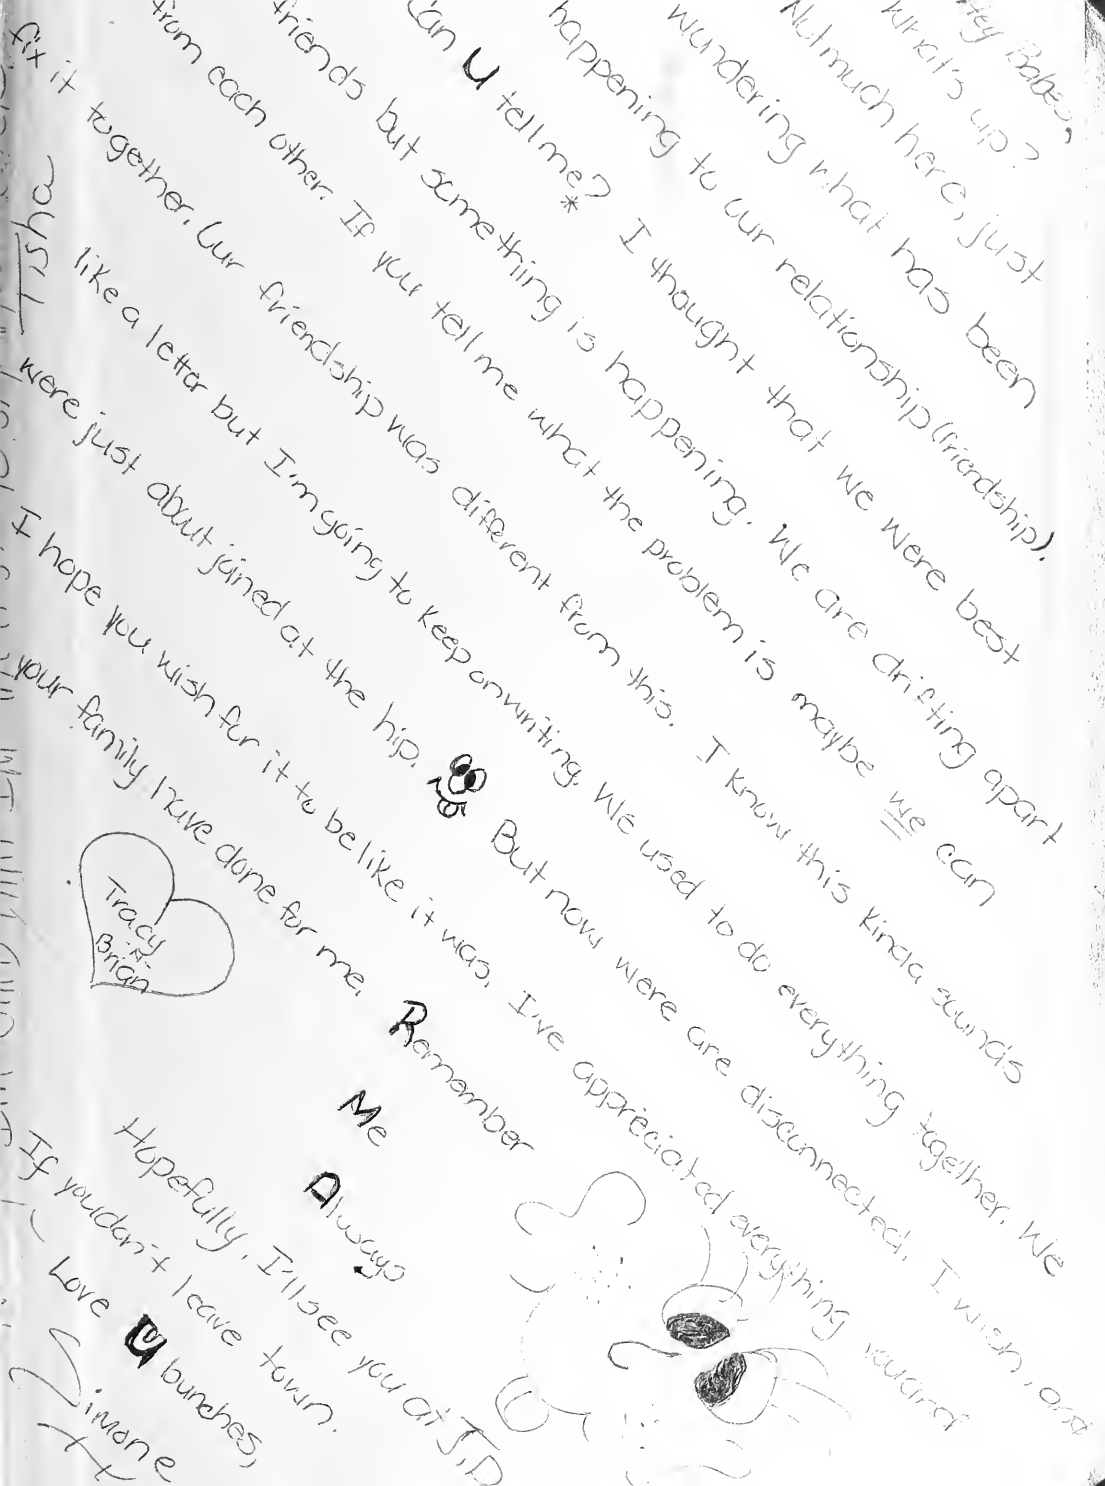 Hey Babes,
What's up?
Not much here, just
wundering what has been
happening to our relationship (friendship).
Can U tell me?* I thought that we were best
friends but something is happening. We are drifting apart
from each other. If you tell me what the problem is maybe we can
fix it together. Our friendship was different from this. I know this kinda sounds
like a letter but I'm going to keep on writing. We used to do everything together. We
were just about joined at the hip. But now were are disconnected. I wish, and
I hope you wish for it to be like it was. I've appreciated everything you and
your family have done for me. Remember
Me
Always
Hopefully, I'll see you at J.D
If you don't leave town.
Love U bunches,
Simone
Tracy
-N-
Brian
Tisha